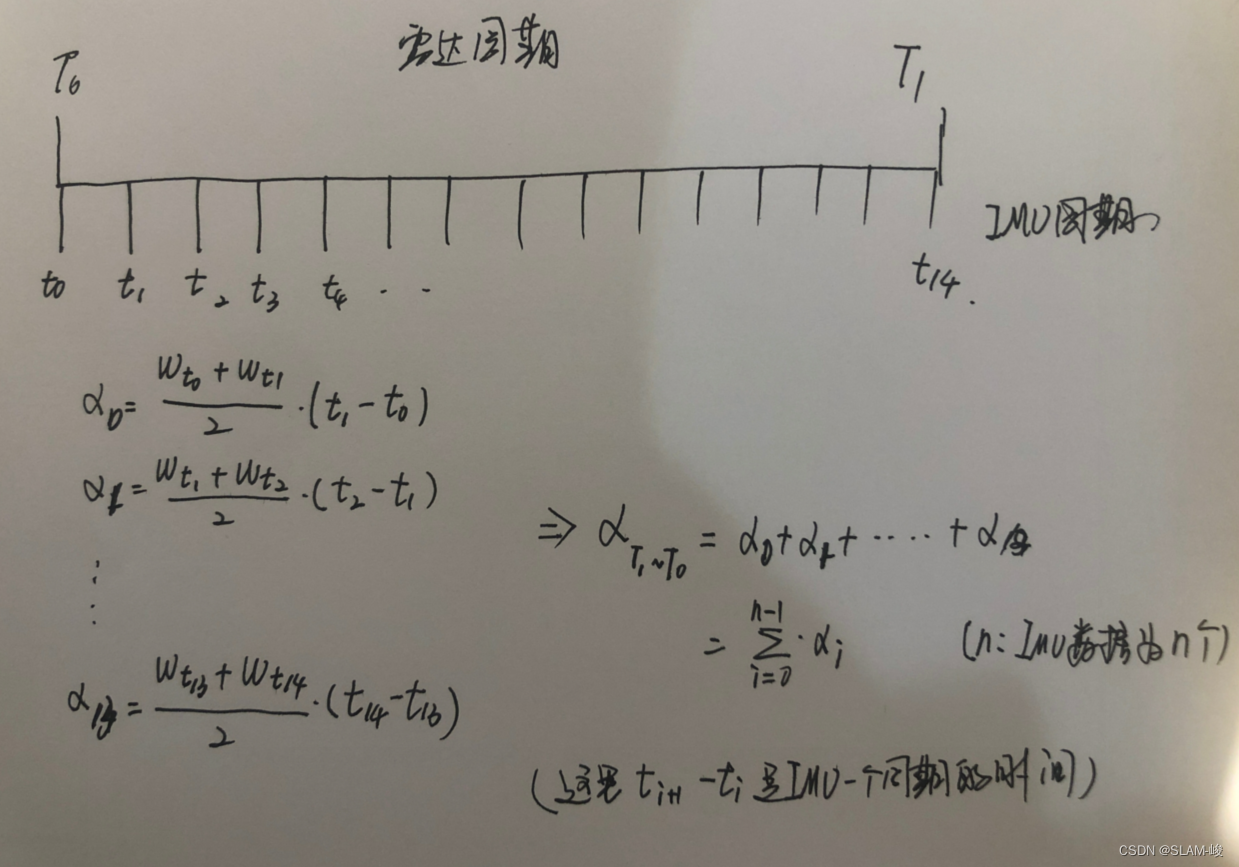 雷达周期
T₀ T₁
IMU周期
t₀ t₁ t₂ t₃ t₄ · · t₁₄.
α₀ = (W_t₀ + W_t₁)/2 · (t₁ - t₀)
α₁ = (W_t₁ + W_t₂)/2 · (t₂ - t₁)
⋮
α₁₃ = (W_t₁₃ + W_t₁₄)/2 · (t₁₄ - t₁₃)
⇒ α_T₁~T₀ = α₀ + α₁ + ····· + α₁₃
= Σ_{i=0}^{n-1} · αᵢ (n: IMU数据为n个)
(这里 tᵢ₊₁ - tᵢ 是IMU一个周期的时间)
CSDN @SLAM-峻